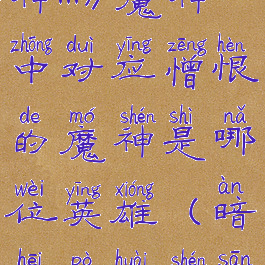 魔
zhōng duì yīng zēng hèn
中对应憎恨
de mó shén shì nǎ
的魔神是哪
wèi yīng xióng àn
位英雄（暗
hēi pò huài shén sān